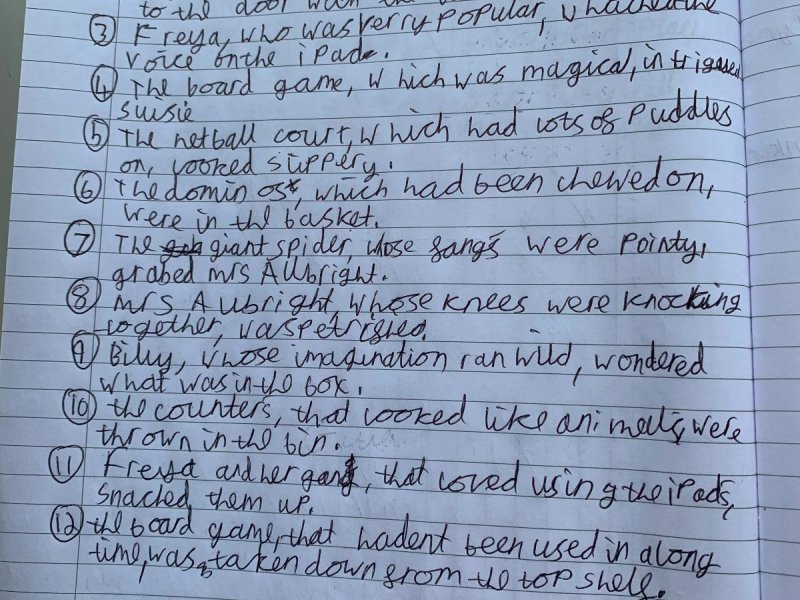 to the door
③ Freya, who was verry popular,
voice on the iPad.
④ The board game, which was magical, intrigued
Suisie
⑤ The netball court, which had lots of puddles
on, looked slippery.
⑥ The dominos, which had been chewed on,
were in the basket.
⑦ The giant spider, whose fangs were pointy,
grabed mrs Allbright.
⑧ Mrs Allbright, whose knees were knocking
together, was petrified.
⑨ Billy, whose imagination ran wild, wondered
what was in the box.
⑩ the counters, that looked like animals, were
thrown in the bin.
⑪ Freya and her gang, that loved using the iPads,
snached them up.
⑫ the board game, that hadent been used in a long
time, was taken down from the top shelf.